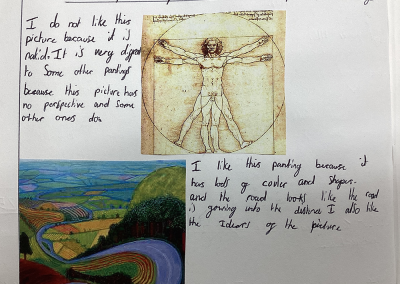 I do not like this
picture because it is
naked. It is very diffrent
to some other paintings
because this picture has
no perspective and some
other ones do.
I like this painting because it
has lots of and shapes.
and the road looks like the road
is growing into the distince I also like
the Idears of the picture